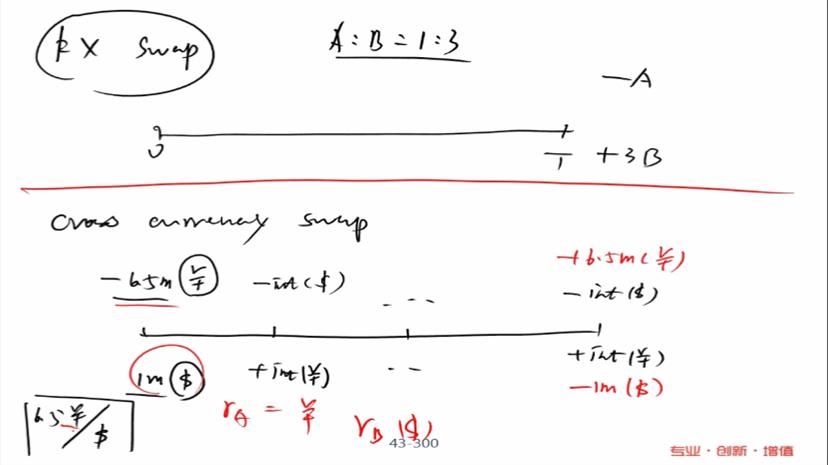 FX swap
A:B=1:3
-A
0
T +3B
cross currency swap
-6.5m(¥) -int($) ... +6.5m(¥)
-int($)
1m($) +int(¥) .. +int(¥)
-1m($)
6.5¥/$
rA = ¥ rB($)
43-300
专业·创新·增值